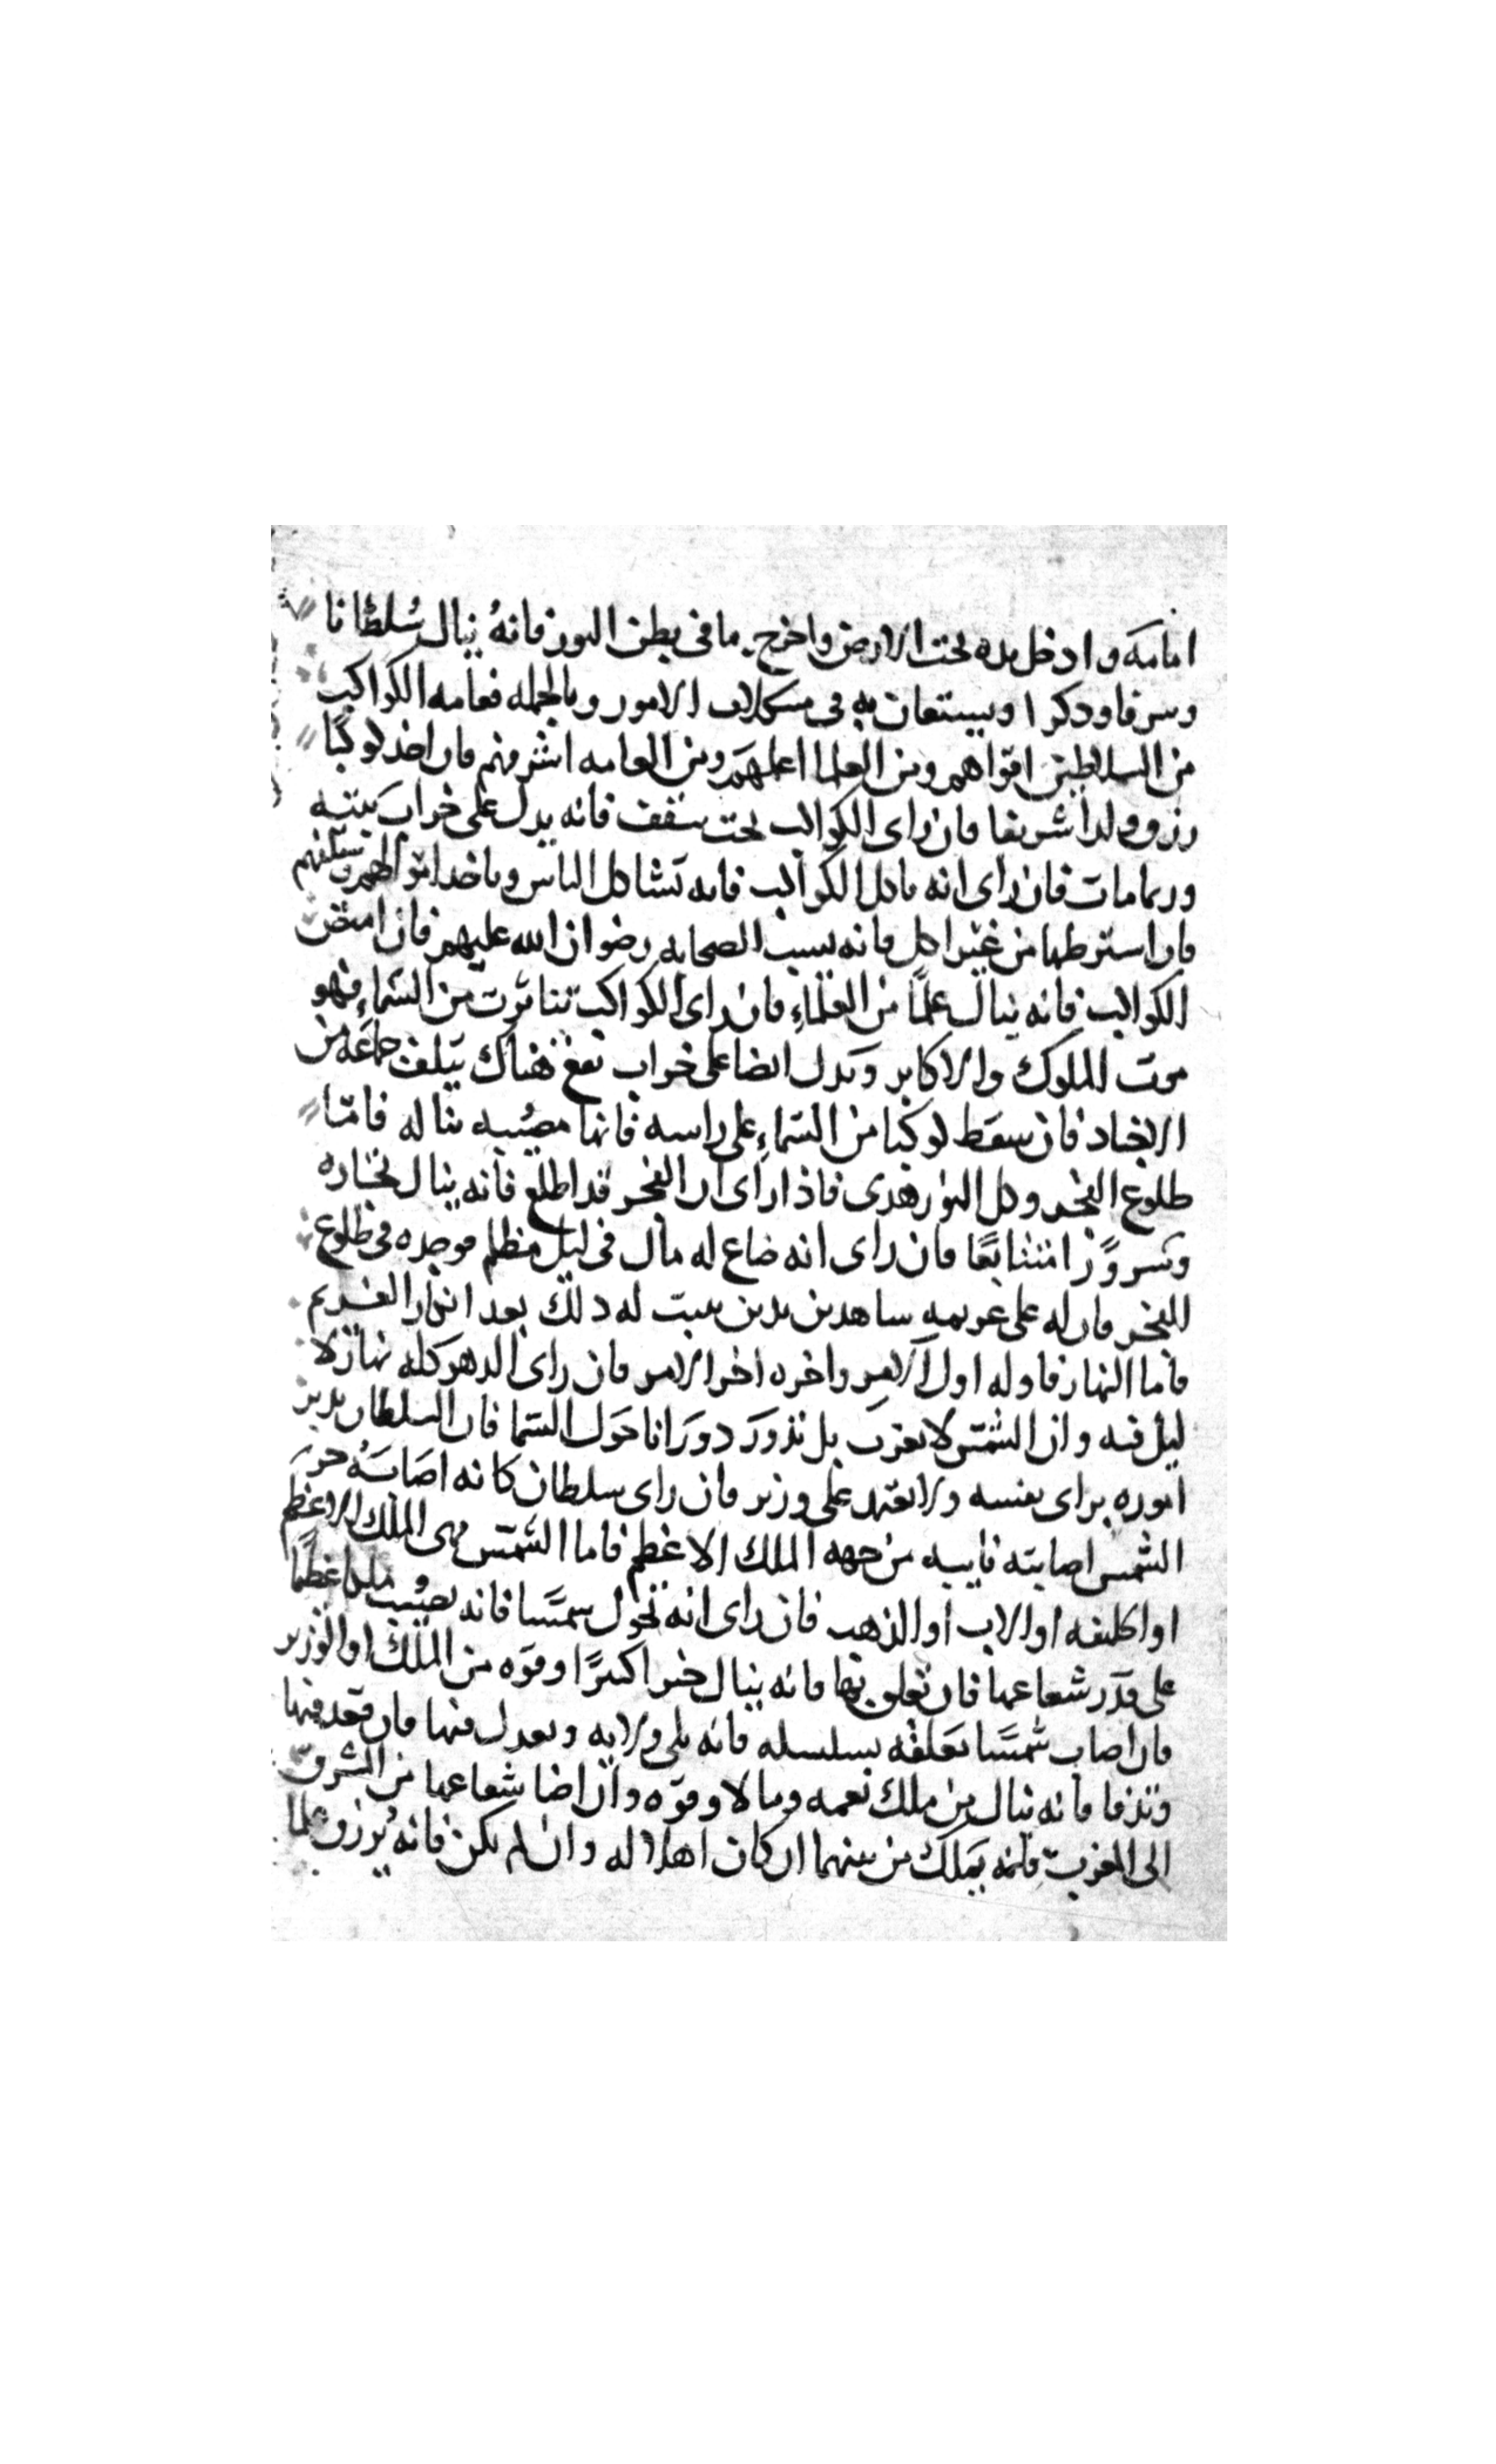 امامه وادخل يده تحت الارض واخرج ما في بطن النور فانه ينال سُلطانا
وسرفا ودكرا ويستعان به في مسكلات الامور وبالجمله فعامه الكواكب
من السلاطين اقواهم ومن العلما اعلمهم ومن العامه اشرفهم فان اخد كوكبًا
رزق ولدا شريفا فان راى الكواكب تحت سقف فانه يدل على خراب بيته
وربما مات فان راى انه ياكل الكواكب فانه يستاكل الناس وياخد اموالهم
فان استرطها من غير اكل فانه يسبب الصحابه رضوان الله عليهم فان امتص
الكواكب فانه ينال علمًا من العلماءِ فان راى الكواكب تناثرت من السماءِ فهو
موت الملوك والاكابر ويدل ايضا على خراب يقع هناك يتلف جماعه من
الاجناد فان سقط كوكبا من السماءِ على راسه فانها مصيبه تناله فامّا
طلوع الفجر وكل النور هدى فاذا راى ان الفجر قد اطلع فانه ينال بخاره
وسرورًا متتابعًا فان راى انه ضاع له مال في ليل مظلم فوجده في طلوع
الفجر فان له على غريمه ساهدين يدين يتبت له دلك بعد انكار الغريم
فاما النهار فاوله اول الامر واخره اخر الامر فان راى الدهر كله نهار لا
ليل فيه وان الشمس لا تغرب بل تدور دورانا حول السما فان السلطان يدبر
اموره براى نفسه ولا يعتمد على وزير فان راى سلطان كانه اصابَهُ حر
الشمس اصابته نايبه من جهه الملك الاعظم فاما الشمس فهى الملك الاعظم
او الخليفه او الاب او الذهب فان راى انه تحول سمسًا فانه يصيب ملكا عظيمًا
على قدر شعاعها فان تعلق بها فانه ينال خيرا كثيرًا وقوه من الملك او الوزير
فان اصاب شمسًا معلقه بسلسله فانه يلى ولايه ويعدل فيها فان قعد فيها
وتدفا فانه ينال من ملك نعمه ومالا وقوّه وان اضا شعاعها من المشرق
الى المغرب فانه يملك من بينهما ان كان اهلا له وان لم يكن فانه يُرزق علما